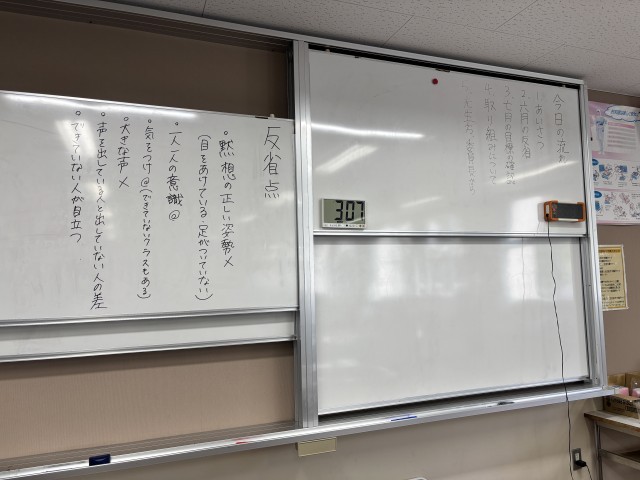 今日の流れ
1.あいさつ
2.六月の反省
3.七月の目標の確認
4.取り組みについて
307
反省点
・黙想の正しい姿勢×
(目をあけている・足がついていない)
・一人一人の意識@
・気をつけ@(できていないクラスもある)
・大きな声×
・声を出している人と出していない人の差
・できていない人が目立つ